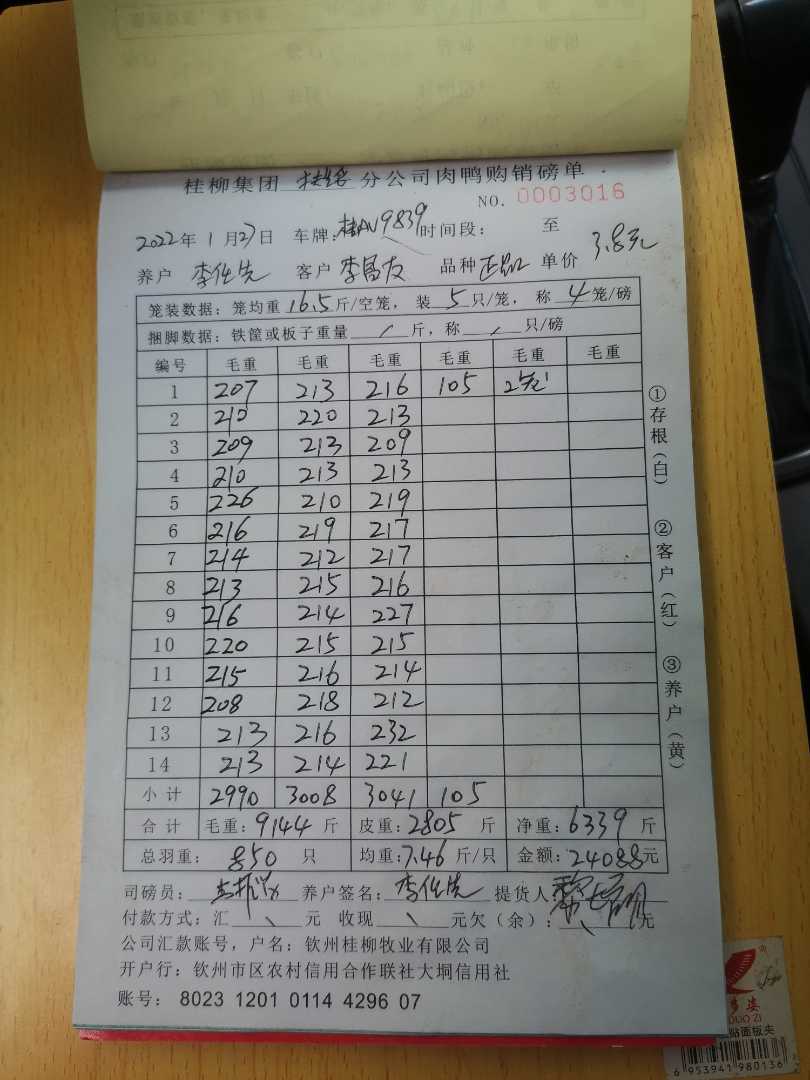 桂柳集团 分公司肉鸭购销磅单
NO. 0003016
2022年 1月27日 车牌:桂AV9839 时间段: 至
养户 李仕先 客户 李昌友 品种 正品 单价 3.8元
笼装数据:笼均重 16.5 斤/空笼, 装 5 只/笼, 称 4 笼/磅
捆脚数据:铁筐或板子重量 / 斤,称 / 只/磅
编号 毛重 毛重 毛重 毛重 毛重 毛重
1 207 213 216 105 2笼
2 210 220 213
3 209 213 209
4 210 213 213
5 226 210 219
6 216 219 217
7 214 212 217
8 213 215 216
9 216 214 227
10 220 215 215
11 215 216 214
12 208 218 212
13 213 216 232
14 213 214 221
小计 2990 3008 3041 105
合计 毛重:9144 斤 皮重:2805 斤 净重:6339 斤
总羽重: 850 只 均重:7.46 斤/只 金额:24088元
司磅员: 养户签名:李仕先 提货人
付款方式:汇 \ 元 收现 \ 元欠(余): \ 元
公司汇款账号,户名:钦州桂柳牧业有限公司
开户行:钦州市区农村信用合作联社大垌信用社
账号: 8023 1201 0114 4296 07
①存根(白)
②客户(红)
③养户(黄)
多姿
DUO ZI
贴面板夹
6 953941 980136